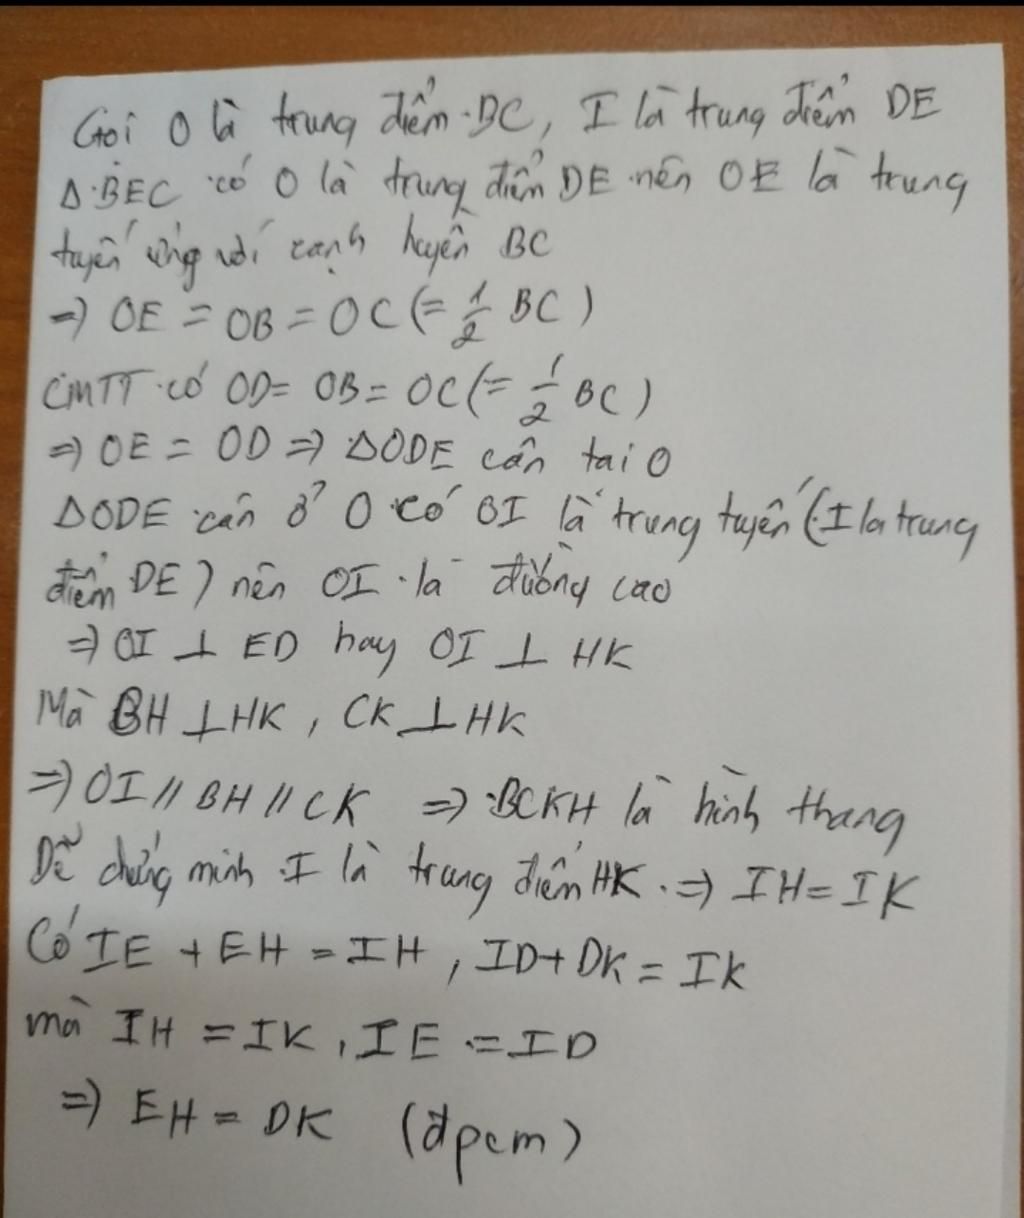 Gọi O là trung điểm BC, I là trung điểm DE
Δ BEC có O là trung điểm DE nên OE là trung
tuyến ứng với cạnh huyền BC
=> OE = OB = OC (= 1/2 BC)
CMTT có OD = OB = OC (= 1/2 BC)
=> OE = OD => ΔODE cân tại O
ΔODE cân ở O có OI là trung tuyến (I là trung
điểm DE) nên OI là đường cao
=> OI ⊥ ED hay OI ⊥ HK
Mà BH ⊥ HK, CK ⊥ HK
=> OI // BH // CK => BCKH là hình thang
Dễ chứng minh I là trung điểm HK. => IH = IK
Có IE + EH = IH, ID + DK = IK
mà IH = IK, IE = ID
=> EH = DK (đpcm)